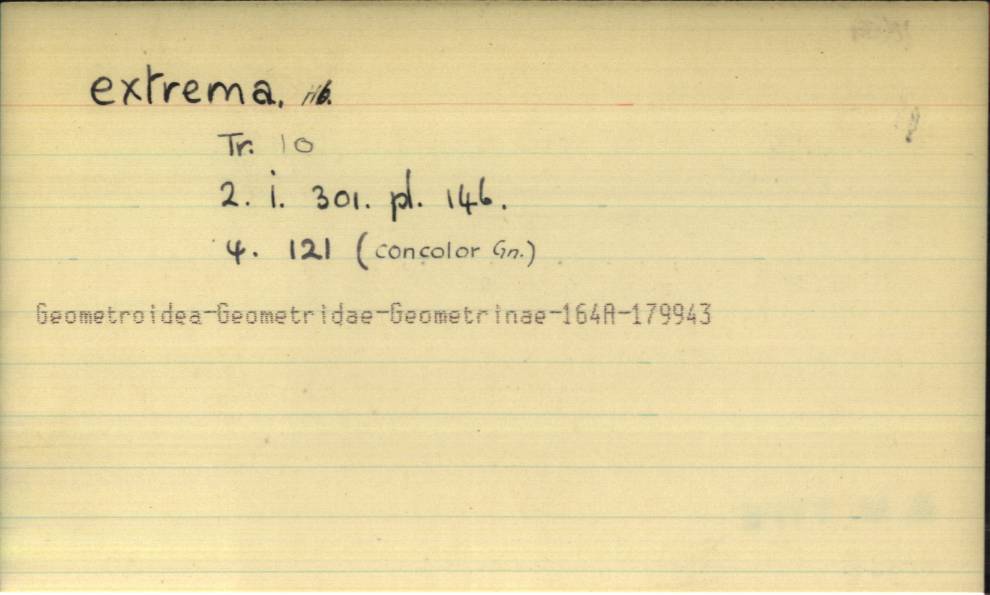 extrema. Hb.
Tr. 10
2. i. 301. pl. 146.
4. 121 (concolor Gn.)
Geometroidea-Geometridae-Geometrinae-164A-179943